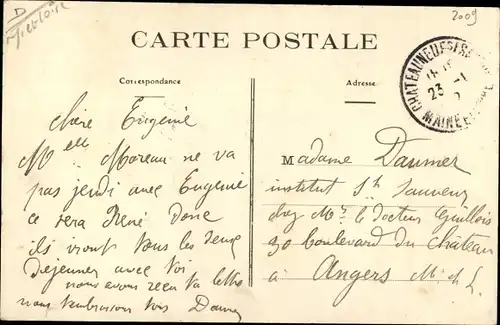 D
2009
CARTE POSTALE
Correspondance
Adresse
CHATEAUNEUF S/ SARTHE
23 - 1
MAINE ET LOIRE
chère Eugenie
Melle Moreau ne va
pas jeudi avec Eugenie
ce sera René Donc
ils vront tous les deux
Dejeuner avec toi
nous avons recu ta lettre
nous t'embrassons tous
Madame Daumer
institut St Sauveur
chez Mr. le docteur Guillois
30 boulevard du chateau
à Angers M. et L.